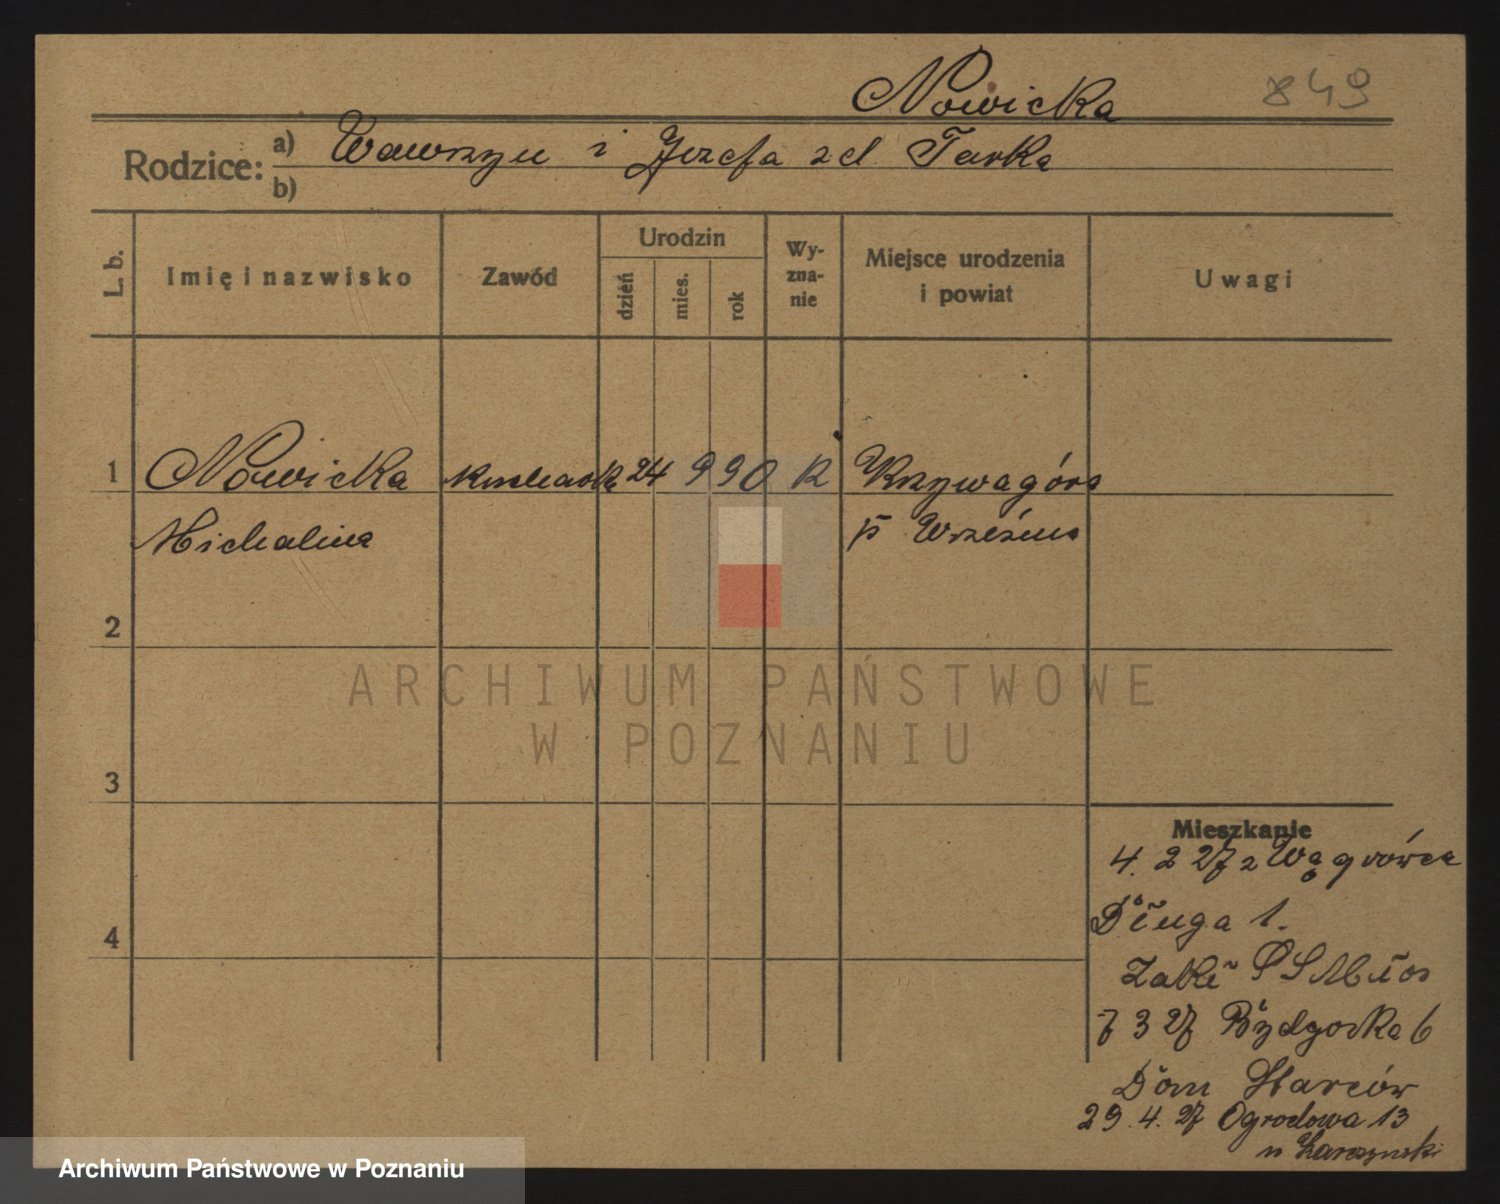 Nowicka 849
Rodzice:
a) Wawrzyn i Józefa zd Turka
b)
L. b.
Imię i nazwisko
Zawód
Urodzin
dzień
mies.
rok
Wy-
zna-
nie
Miejsce urodzenia
i powiat
Uwagi
1 Nowicka kucharka 24 9 90 R Krzywagóra
Michalina p Września
2
3
4
ARCHIWUM PAŃSTWOWE
W POZNANIU
Mieszkanie
4. 2 27 z Wągrówca
Długa 1.
Zakł P S Miłos
7 3 27 Bydgoska 6
Dom Starców
29. 4. 27 Ogrodowa 13
Archiwum Państwowe w Poznaniu